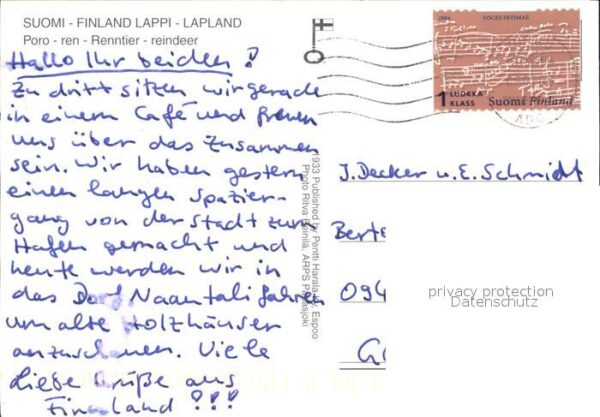 SUOMI - FINLAND LAPPI - LAPLAND
Poro - ren - Renntier - reindeer
Hallo Ihr beiden!
Zu dritt sitzen wir gerade
in einem Café und freuen
uns über das Zusammen
sein. Wir haben gestern
einen langen Spazier-
gang von der Stadt zum
Hafen gemacht und
heute werden wir in
das Dorf Naantali fahren
um alte Holzhäuser
anzuschauen. Viele
liebe Grüße aus
Finnland!!!
1933 Published by Pentti Harala, Espoo
Photo Ritva
ARPS
2004 VOCES INTIMAE
1 LUOKKA
KLASS Suomi Finland
J. Decker u. E. Schmidt
Berte
094
privacy protection
Datenschutz